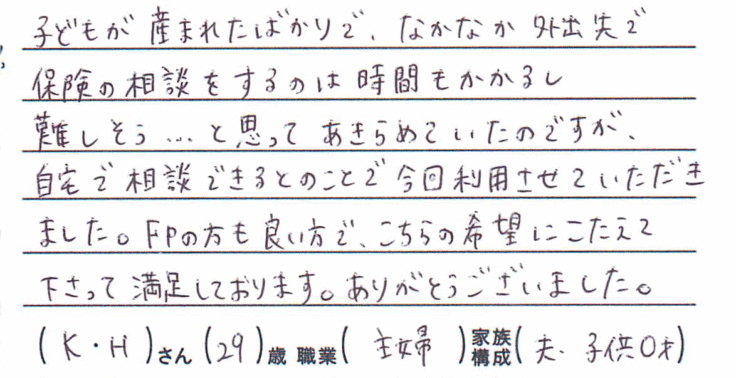 子どもが産まれたばかりで、なかなか外出先で
保険の相談をするのは時間もかかるし
難しそう…と思ってあきらめていたのですが、
自宅で相談できるとのことで今回利用させていただき
ました。FPの方も良い方で、こちらの希望にこたえて
下さって満足しております。ありがとうございました。
(K・H)さん(29)歳 職業(主婦)家族構成(夫・子供0才)